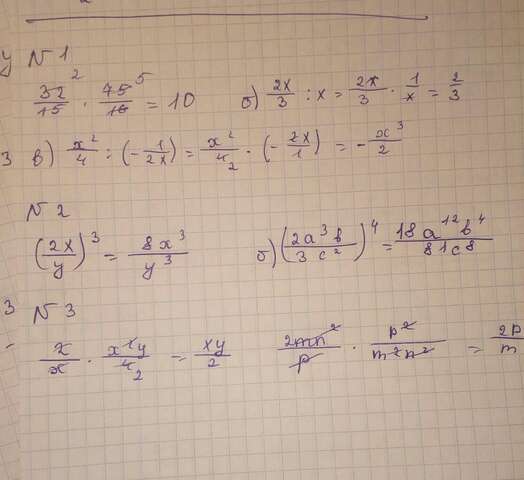 у N 1
32/15 2 · 75/16 5 = 10 б) 2x/3 : x = 2x/3 · 1/x = 2/3
3 в) x²/4 : (- 1/2x) = x²/4 2 · (- 2x/1) = - x³/2
N 2
(2x/y)³ = 8x³/y³ б) (2a³b/3c²)⁴ = 18a¹²b⁴/81c⁸
3 N 3
x/x · x²y/4 2 = xy/2 2mn²/p · p²/m²n² = 2p/m